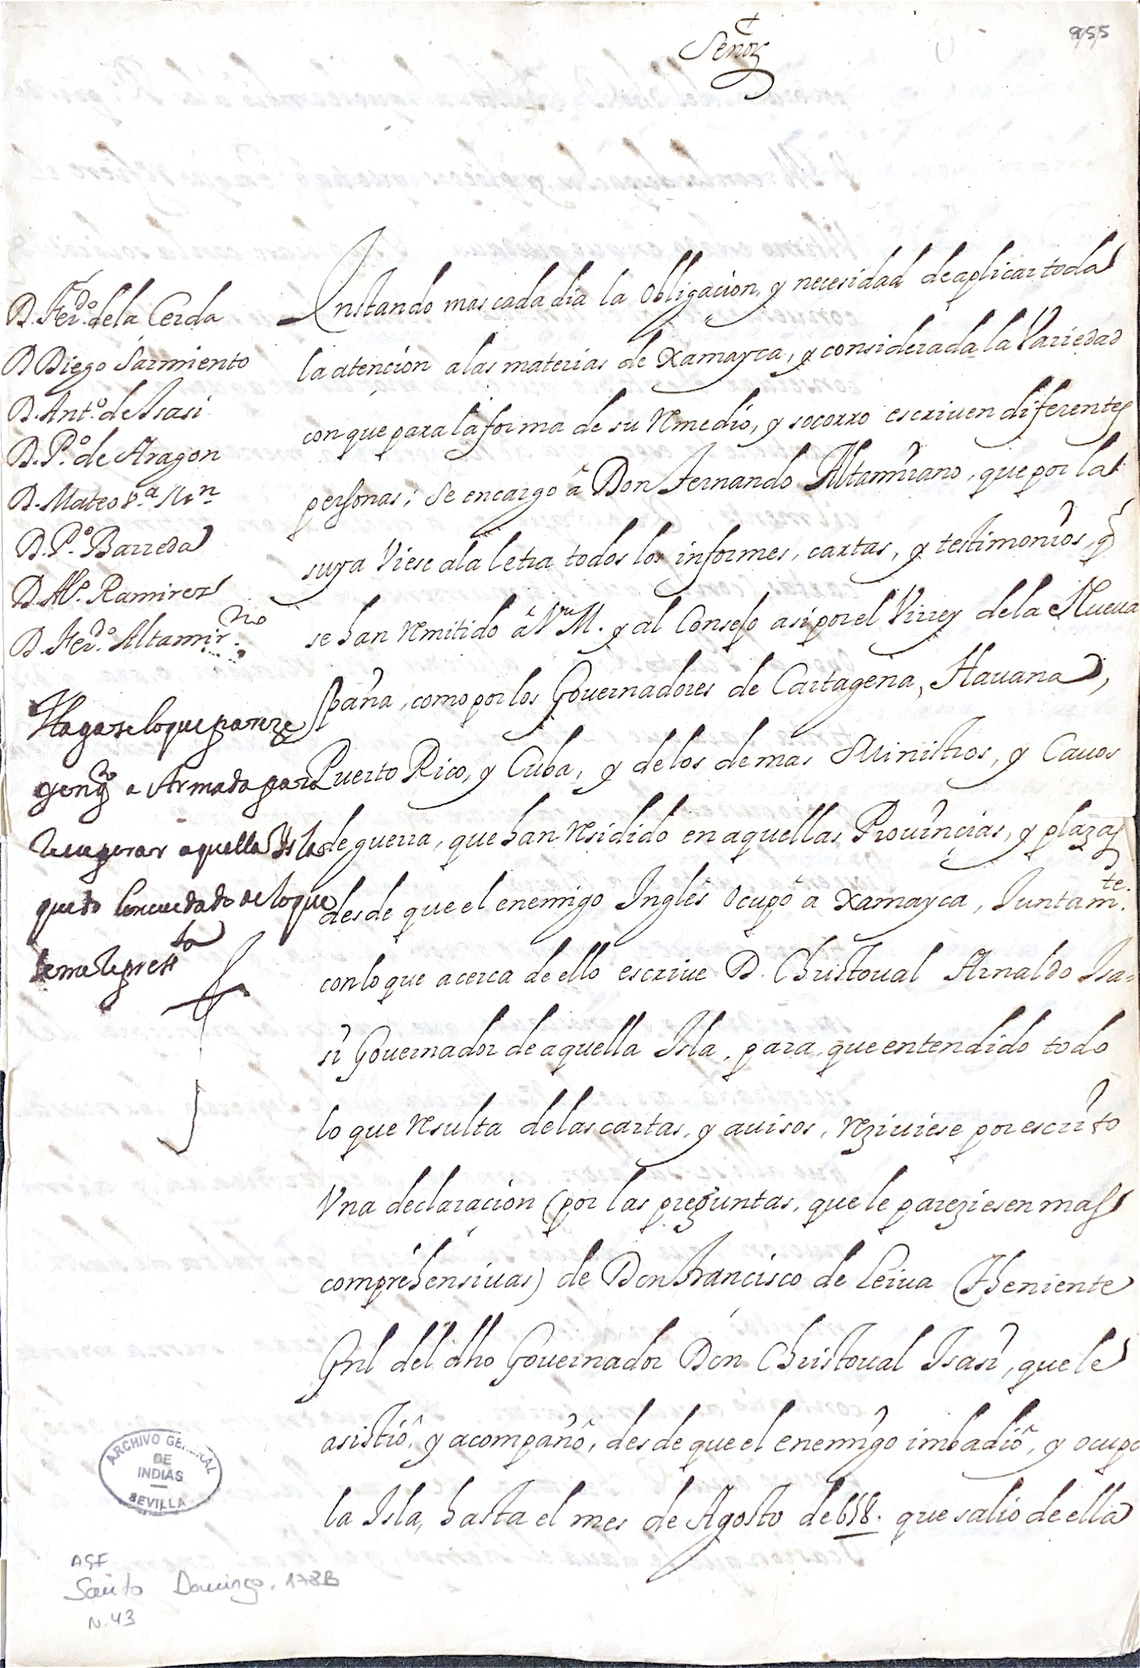 855
Señor
D. Fer.do de la Cerda
D Diego Sarmiento
D. Ant.o de Isasi
D. P.o de Aragon
D. Mateo
D. P.o Barreda
D. Al.o Ramirez
D. Fer.do Altamir.no
Hagase lo que pareze
y en q.to a Armada para
recuperar aquella Isla
quedo con cuidado de lo que
se me repres.ta
Instando mas cada dia la obligacion, y necesidad de aplicar toda
la atencion a las materias de Xamayca, y considerada la Variedad
con que para la forma de su remedio, y socorro escriven diferentes
personas; se encargo â Don Fernando Altamirano, que por la
suya Viese a la letra todos los informes, cartas, y testimonios, q̃
se han remitido â V. M. y al Consejo asi por el Virrey de la Nueua
spaña, como por los Gouernadores de Cartagena, Hauana,
Puerto Rico, y Cuba, y de los demas Ministros, y Cauos
de guerra, que han residido en aquellas Prouincias, y plazas
desde que el enemigo Inglês ocupô a Xamayca, Juntam.te
con lo que acerca de ello escriue D. Christoual Arnaldo Isa-
si Gouernador de aquella Isla, para que entendido todo
lo que resulta de las cartas, y auisos, reziuiese por escrito
Vna declaracion (por las preguntas, que le pareziesen mas
comprehensiuas) de Don Francisco de Leiua Theniente
Gnl del dho Gouernador Don Christoual Isasi, que le
asistiô, y acompañô, desde que el enemigo imbadiô, y ocupo
la Isla, hasta el mes de Agosto de 658. que salio de ella
ARCHIVO GENERAL
DE
INDIAS
SEVILLA
AGI
Santo Domingo, 178B
N. 43